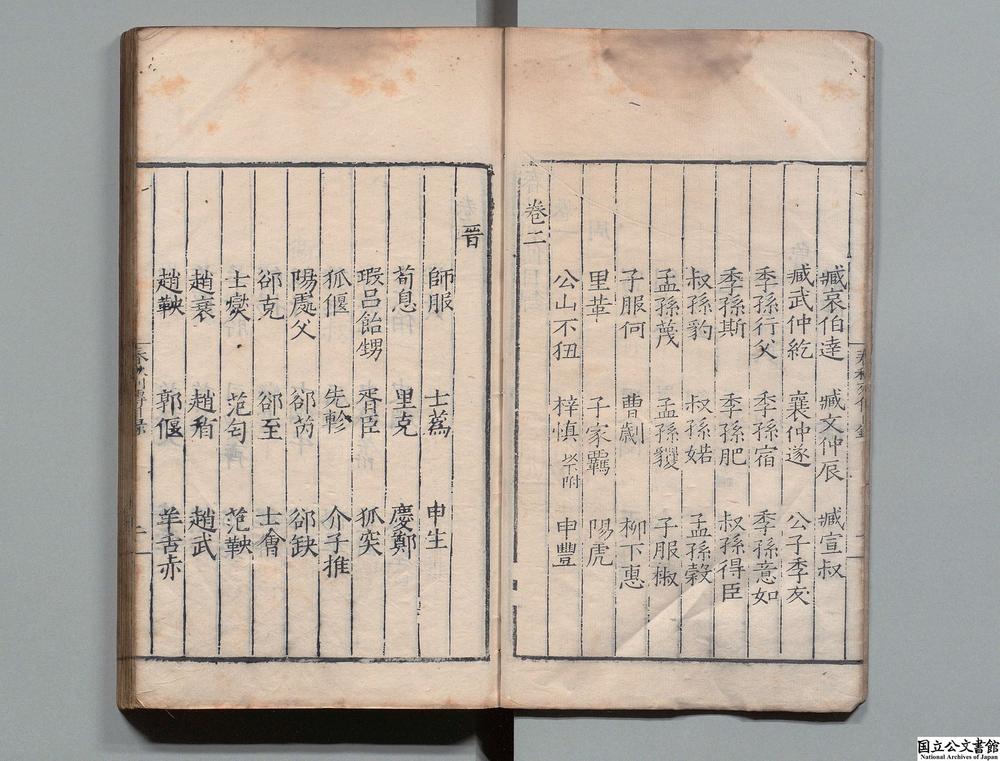 臧哀伯達 臧文仲辰 臧宣叔
臧武仲紇 襄仲遂 公子季友
季孫行父 季孫宿 季孫意如
季孫斯 季孫肥 叔孫得臣
叔孫豹 叔孫婼 孟孫穀
孟孫蔑 孟孫貜 子服椒
子服何 曹劌 柳下惠
里革 子家羈 陽虎
公山不狃 梓慎 以下附 申豐
卷二
晉
師服 士蒍 申生
荀息 里克 慶鄭
瑕呂飴甥 胥臣 狐突
狐偃 先軫 介子推
陽處父 郤芮 郤缺
郤克 郤至 士會
士燮 范匄 范鞅
趙衰 趙盾 趙武
趙鞅 郭偃 羊舌赤
二
国立公文書館
National Archives of Japan